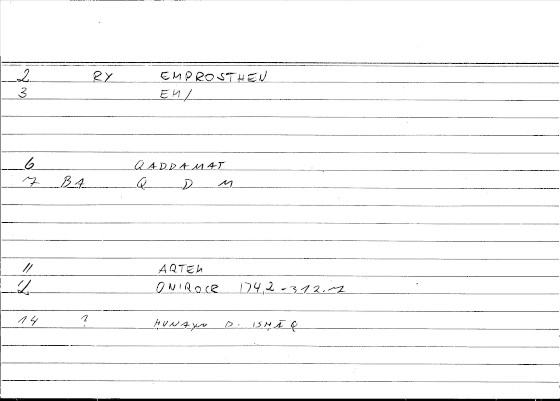 2 RY EMPROSTHEN
3 EM/
6 QADDAMAT
7 BA Q D M
11 ARTEM
12 ONIROCR 174,2 - 312.7
14 ? HUNAYN B. ISḤĀQ